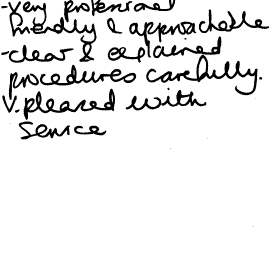 -very professional
friendly & approachable
-clear & explained
procedures carefully.
V. pleased with
service